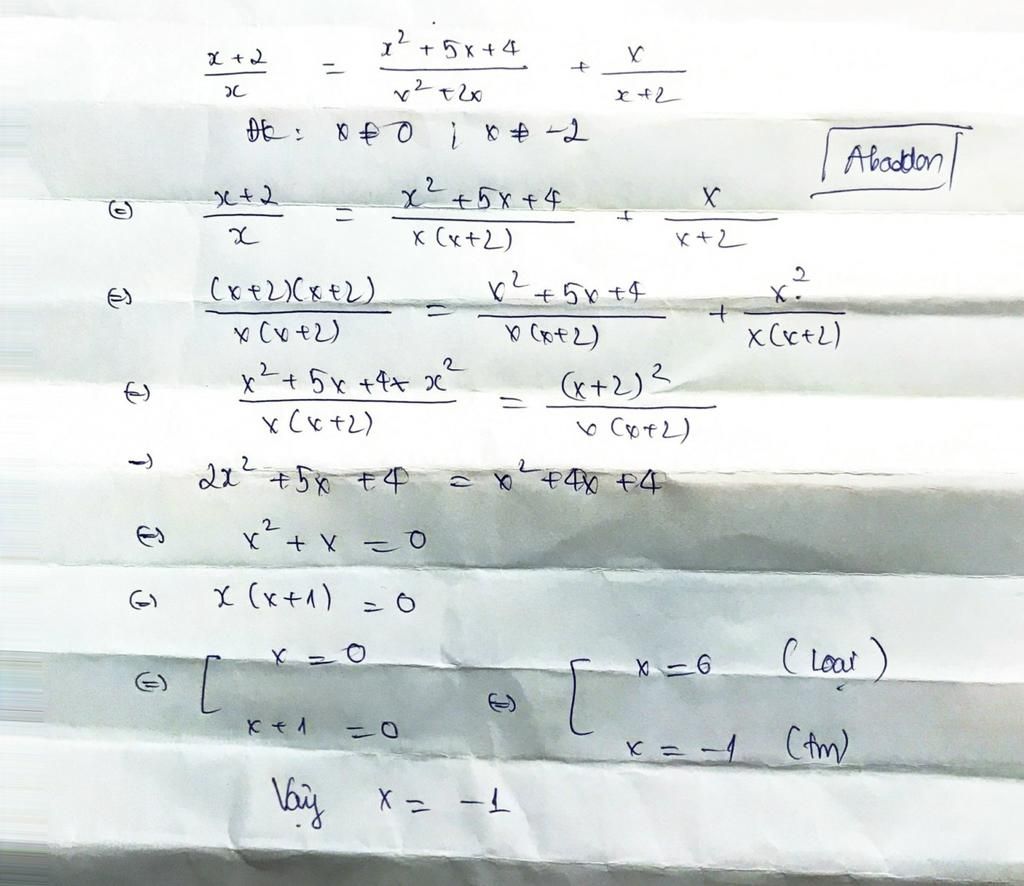 x+2/x = x² + 5x + 4/x² + 2x + x/x+2
ĐK: x ≠ 0 ; x ≠ -2
Abaddon
(=) x+2/x = x² + 5x + 4/x(x+2) + x/x+2
(=) (x+2)(x+2)/x(x+2) = x² + 5x + 4/x(x+2) + x²/x(x+2)
(=) x² + 5x + 4 + x²/x(x+2) = (x+2)²/x(x+2)
→ 2x² + 5x + 4 = x² + 4x + 4
(=) x² + x = 0
(=) x(x+1) = 0
(=) [ x = 0 (=) [ x = 0 (Loại)
x + 1 = 0 x = -1 (tm)
Vậy x = -1